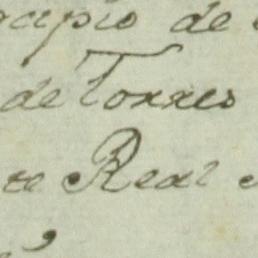 cipio de
de Torres
te Real